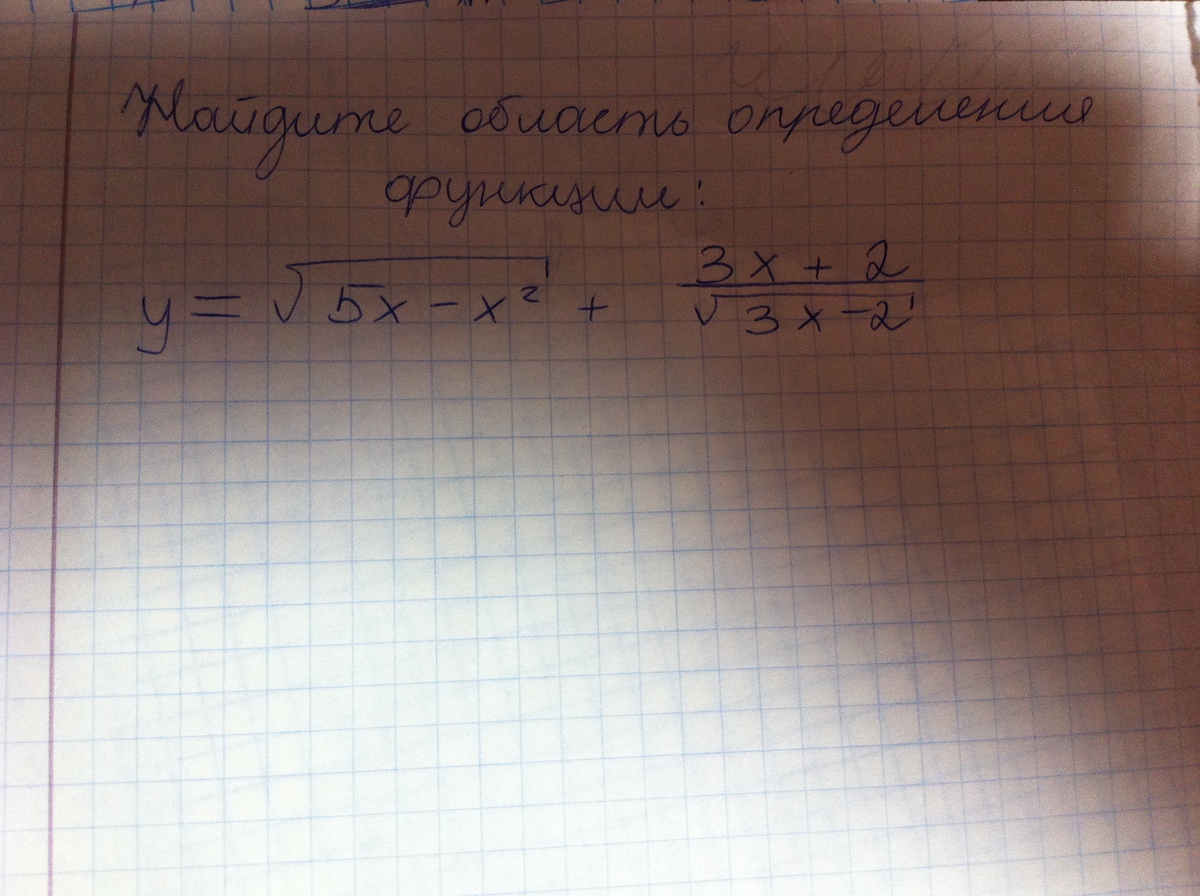 Найдите область определения
функции:
y = √(5x − x²) + (3x + 2)/√(3x − 2)